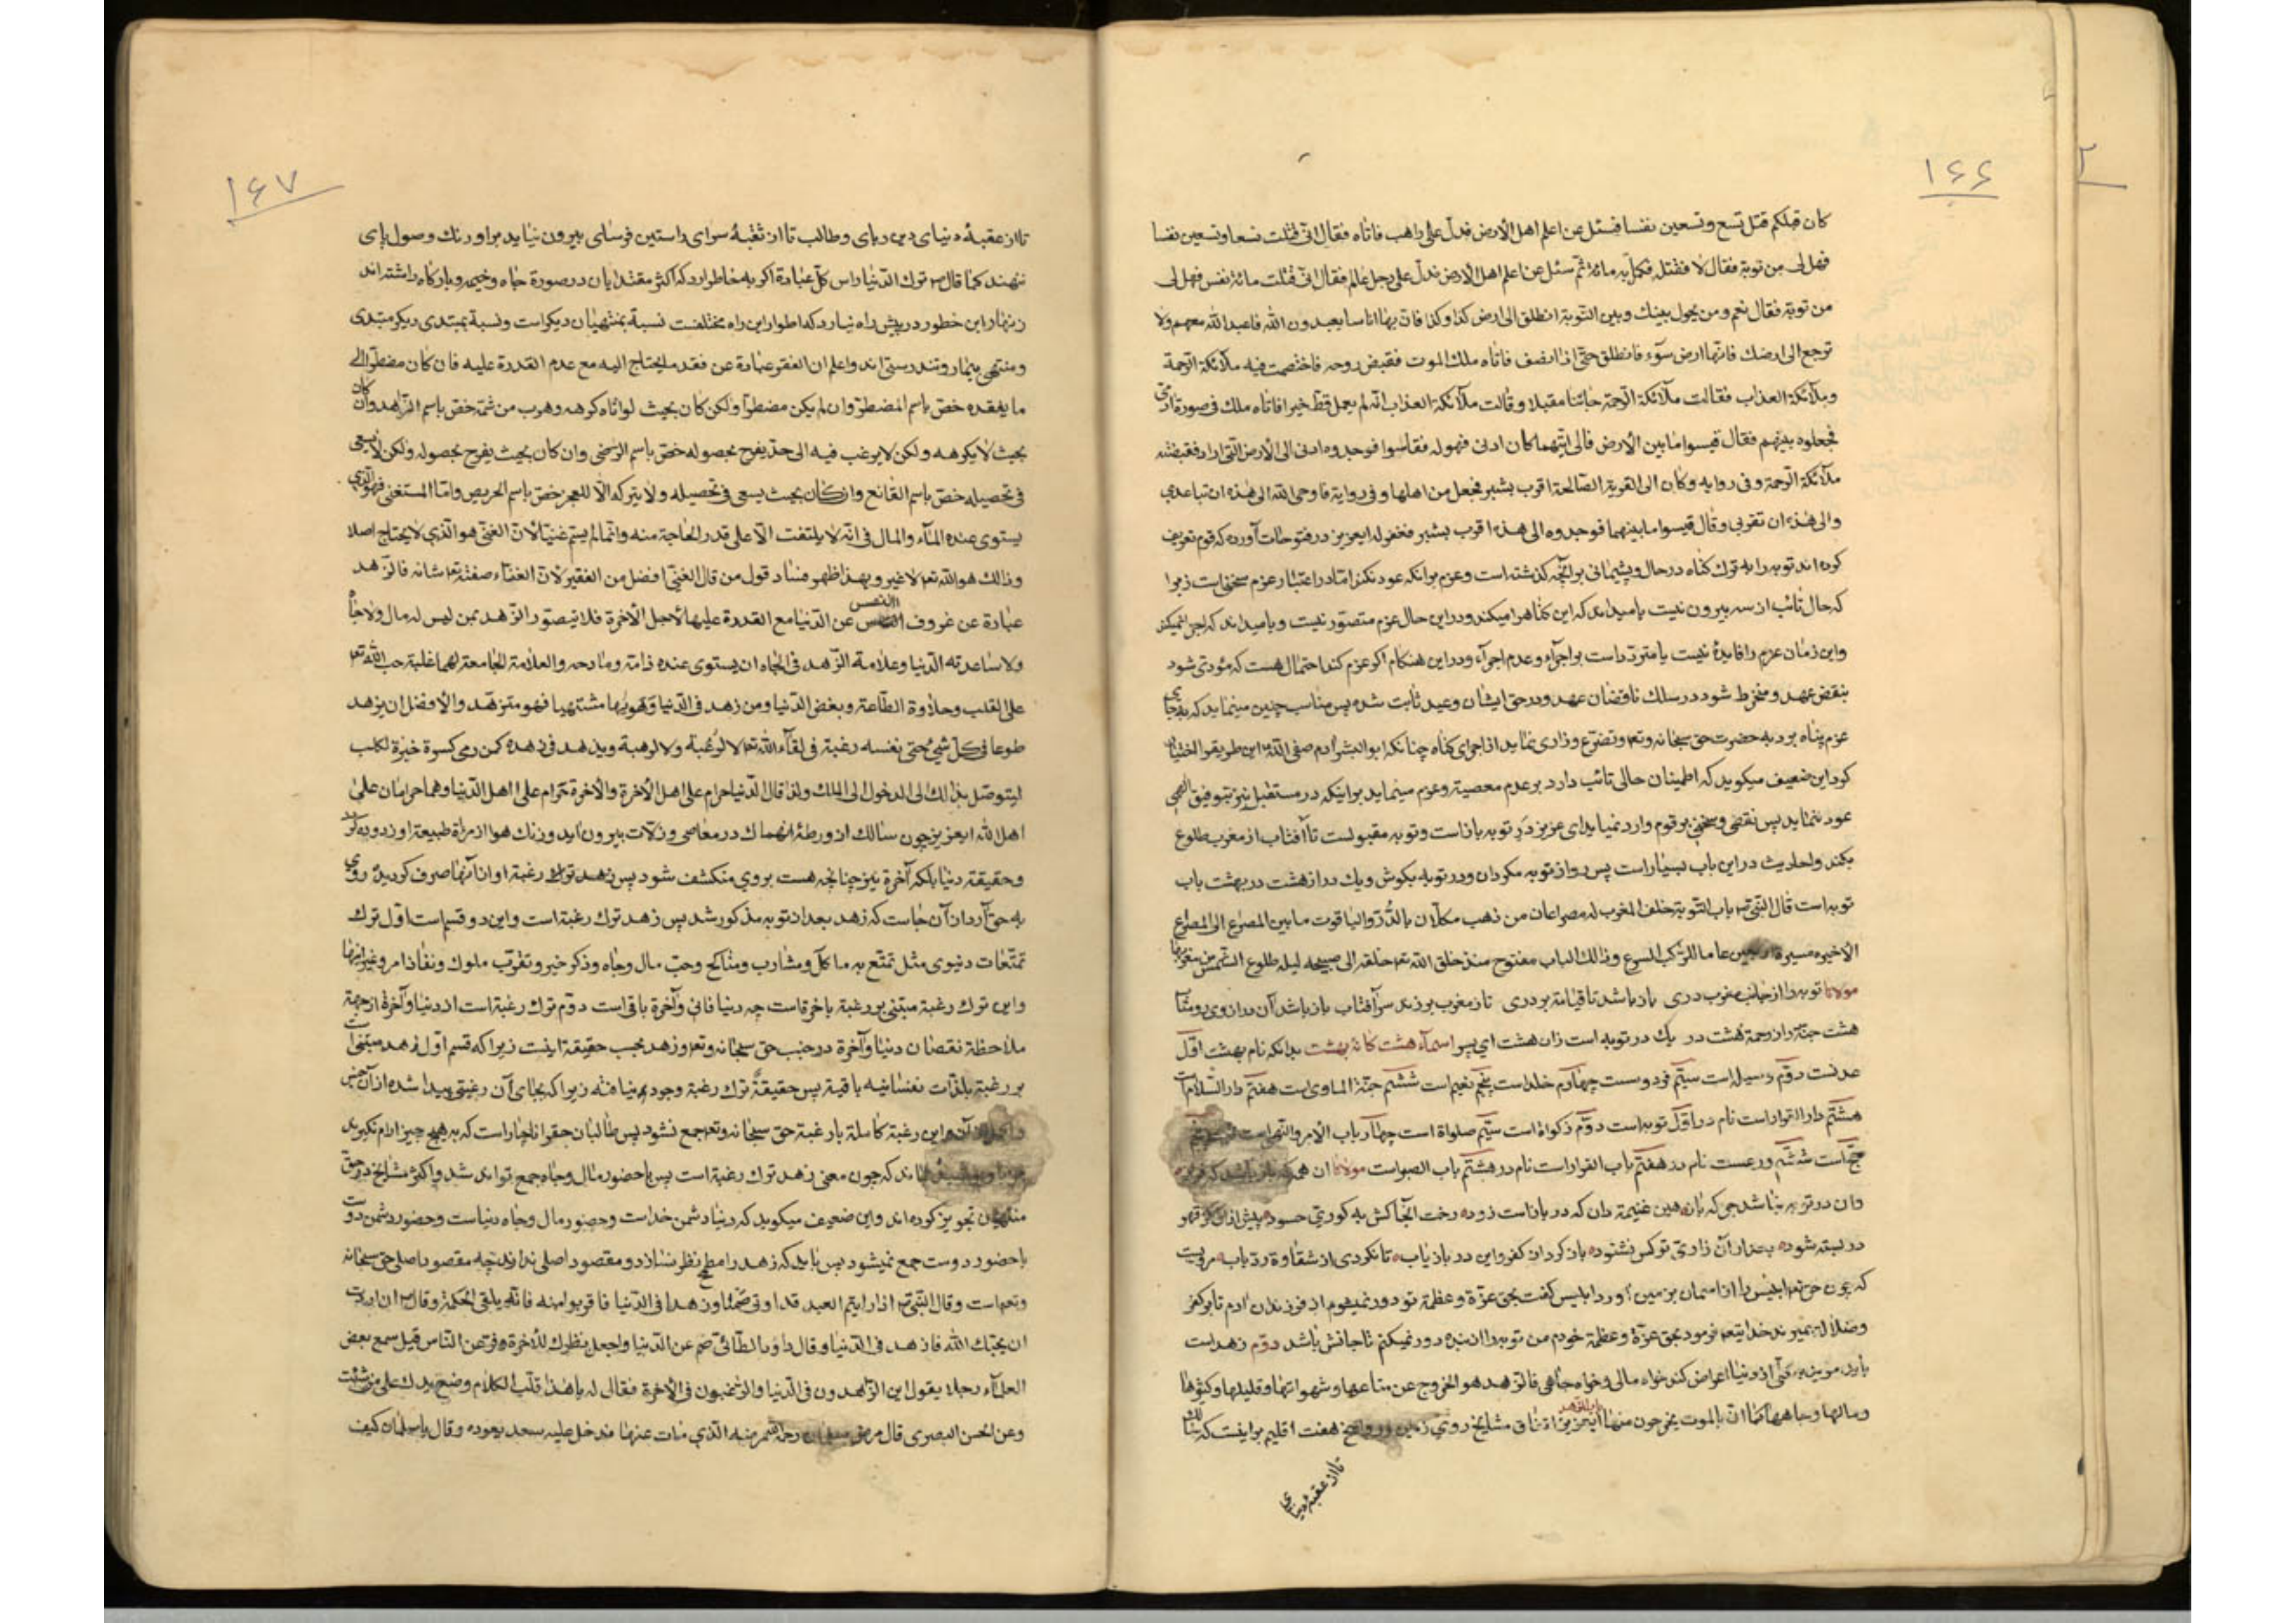 ۱۶۶
کان قبلکم قتل تسع وتسعین نفسا فسئل عن اعلم اهل الأرض فدل علی راهب فاتاه فقال انی قتلت تسعا وتسعین نفسا
فهل لی من توبة فقال لا فقتله فکمل به مائة ثم سئل عن اعلم اهل الارض فدل علی رجل عالم فقال انی قتلت مائة نفس فهل لی
من توبة فقال نعم ومن یحول بینك وبین التوبة انطلق الی ارض کذا وکذا فان بها اناسا یعبدون الله فاعبد الله معهم ولا
ترجع الی ارضك فانها ارض سوء فانطلق حتی اذا نصف فاتاه ملك الموت فقبض روحه فاختصمت فیه ملائکة الرحمة
وملائکة العذاب فقالت ملائکة الرحمة جائنا مقبلا وقالت ملائکة العذاب انه لم یعمل قط خیرا فاتاه ملك فی صورة آدمی
فجعلوه بینهم فقال قیسوا مابین الأرض فالی ایتهما کان ادنی فهو له فقاسوا فوجدوه ادنی الی الأرض التی اراد فقبضته
ملائکة الرحمة وفی روایه وکان الی القریة الصالحة اقرب بشبر فجعل من اهلها وفی روایة فاوحی الله الی هذه ان تباعدی
والی هذه ان تقربی وقال قیسوا مابینهما فوجدوه الی هذه اقرب بشبر فغفر له ایعزیز در فتوحات آورده که قوم تعریف
کرده اند توبه را به ترك کناه در حال وپشیمانی بر آنچه کذشته است وعزم بر انکه عود نکند امّا در اعتبار عزم سخنی است زیرا
که حال تائب از سه بیرون نیست یا میداند که این کناهرا میکند ودر این حال عزم متصوّر نیست ویا میداند که اجرا نمیکند
واین زمان عزم را فایدهٔ نیست یا متردّد است بر اجراء وعدم اجراء ودر این هنکام اکر عزم کند احتمال هست که مؤدی شود
بنقض عهد ومنخرط شود در سلك ناقضان عهد ودر حق ایشان وعید ثابت شده پس مناسب چنین مینماید که بجای
عزم پناه برد به حضرت حق سبحانه وتعالی وتضرع وزاری نماید از اجرای کناه چنانکه ابوالبشر آدم صفی الله این طریق را اختیار
کرد این ضعیف میکوید که اطمینان حالی تائب دارد بر عدم معصیة وعزم مینماید بر اینکه در مستقبل نیز بتوفیق الهی
عود ننماید پس نقضی وسخنی بر قوم وارد نمیاید ای عزیز در توبه باز است وتوبه مقبولست تا آفتاب از مغرب طلوع
بکند واحادیث در این باب بسیار است پس رو از توبه مکردان ودر توبه بکوش ویك در از هشت در بهشت باب
توبه است قال النبی ص باب التوبة خلف المغرب له مصراعان من ذهب مکلّلان بالدّر والیاقوت مابین المصرع الی المصرع
الاخیره مسیرة اربعین عاما للرّکب المسرع وذالك الباب مفتوح منذ خلق الله خلقه الی صبیحه لیله طلوع الشمس من مغربها
مولانا توبه را از جانب مغرب دری باز باشد تا قیامة بر دری تا ز مغرب بر زند سر آفتاب باز باشد آن در از وی رو متاب
هشت جنّة را ز رحمة هشت در یك در توبه است زان هشت ای پسر اسماء هشت کانهٔ بهشت بدانکه نام بهشت اوّل
عدنست دوّم وسیله است سیّم فردوسست چهارم خلد است پنجم نعیم است ششم جنّة الماوی است هفتم دار السّلام است
هشتم دار القرار است نام در اوّل توبه است دوّم زکواة است سیّم صلواة است چهارم باب الامر والنهی است پنجم
حج است ششم ورعست نام در هفتم باب القرار است نام در هشتم باب الصبر است مولانا ان همه که باز باشد که فراز
وان در توبه نباشد جز که باز هین غنیمة دان که در باز است زوده رخت آنجا کش به کوری حسود پیش از ان کز قهر
در بسته شود بعد از آن زاری تو کس نشنود باز کردان کفر واین در باز یاب تا نکردی از شقاوة ردّ باب مرویست
که چون حق تعالی ابلیس را از اسمان بزمین آورد ابلیس کفت بحق عزّة وعظمة تو دور نمیشوم از فرزندان ادم تا بر کفر
وضلالة بمیرند خدایتعالی فرمود بحق عزّة وعظمة خودم من توبه را از بنده دور نمیکنم تا جانش باشد دوّم زهد است
باید مرید بکلّی از دنیا اعراض کند خواه مالی وخواه جاهی فالزهد هو الخروج عن متاعها وشهواتها وقلیلها وکثیرها
ومالها وجاهها کما ان بالموت یخرجون منها ایعزیز اتفاق مشایخ روی زمین هفت اقلیم بر اینست که سالك
تا از عقبهٔ دنیای
۱۶۷
تا از عقبهٔ دنیای دین ربای وطالب تا از ثقبهٔ سرای راستین فرسای بیرون نیاید بر اورنك وصول پای
ننهند کما قال ص ترك الدّنیا راس کلّ عبادة اکر به خاطر ارد که اکثر مقتدایان در صورة جاه وخیمه وبارکاه داشته اند
زنهار این خطور در پیش راه نیارد که اطوار این راه مختلفست نسبة بمنتهیان دیکر است ونسبة بمبتدی دیکر مبتدی
ومنتهی بیمار وتندرستی اند واعلم ان الفقر عبارة عن فقد ما یحتاج الیه مع عدم القدرة علیه فان کان مضطرّا الی
ما یفقده خصّ باسم المضطرّ وان لم یکن مضطرّا ولکن کان بحیث لو اتاه کرهه وهرب من ثمّة خصّ باسم الزّاهد وان کان
بحیث لا یکرهه ولکن لا یرغب فیه الی حدّ یفرح بحصوله خصّ باسم الرّضی وان کان بحیث یفرح بحصوله ولکن لا یسعی
فی تحصیله خصّ باسم القانع وان کان بحیث یسعی فی تحصیله ولا یترکه الّا للعجز خصّ باسم الحریص وامّا المستغنی فهو الّذی
یستوی عنده الماء والمال فی انّه لا یلتفت الّا علی قدر الحاجة منه وانّما لم یسم غنیّا لأنّ الغنی هو الّذی لا یحتاج اصلا
وذالك هو الله تعالی لا غیر وبهذا ظهر فساد قول من قال الغنی افضل من الفقیر لأنّ الغناء صفته تعالی شانه فالزّهد
عبارة عن غروف النفس عن الدّنیا مع القدرة علیها لأجل الأخرة فلا یتصوّر الزّهد بمن لیس له مال ولا جاه
ولا ساعدته الدّنیا وعلامة الزّهد فی الجاه ان یستوی عنده ذامّه ومادحه والعلامة الجامعة لهما غلبة حب الله تعالی
علی القلب وحلاوة الطّاعة وبغض الدّنیا ومن زهد فی الدّنیا وهویها مشتهیا فهو متزهّد والأفضل ان یزهد
طوعا فی کلّ شیء حتی نفسه رغبة فی لقاء الله تعالی لا لرغبة ولا لرهبة ویزهد فی زهده کمن رمی کسرة خبزة لکلب
لیتوصّل بذالك الی الدخول الی الملك ولذا قال الدّنیا حرام علی اهل الأخرة والأخرة حرام علی اهل الدّنیا وهما حرامان علی
اهل الله ایعزیز چون سالك از ورطهٔ انهماك در معاصی وزلّات بیرون اید وزنك هوا از مرأة طبیعة او زدوده کردد
وحقیقة دنیا بلکه آخرة نیز چنانچه هست بر وی منکشف شود پس زهد ترك رغبة او از آنها صرف کردیدهٔ روی
به حق آرد از آن جاست که زهد بعد از توبه مذکور شد پس زهد ترك رغبة است واین دو قسم است اوّل ترك
تمتّعات دنیوی مثل تمتّع به ماکل ومشارب ومناکح وحبّ مال وجاه وذکر خیر وتقرّب ملوك ونفاذ امر وغیر اینها
واین ترك رغبة مبتنی بر رغبة باخرة است چه دنیا فانی وآخرة باقی است دوّم ترك رغبة است از دنیا وآخرة از جهة
ملاحظة نقصان دنیا وآخرة در جنب حق سبحانه وتعالی وزهد بحسب حقیقة اینست زیرا که قسم اوّل زهد مبتنی است
بر رغبة بلذّات نفسانیه باقیة پس حقیقةً ترك رغبة وجود نیافته زیرا که بجای آن رغبتی پیدا شده از آن جنس
این رغبة کاملة با رغبة حق سبحانه وتعالی جمع نشود پس طالبان حقرا ناچار است که به هیچ چیز ارام نکیرند
نماند که چون معنی زهد ترك رغبة است پس با حضور مال وجاه جمع تواند شد واکثر مشایخ در حق
منتهیان تجویز کرده اند واین ضعیف میکوید که دنیا دشمن خداست وحضور مال وجاه دنیاست وحضور دشمن دوست
با حضور دوست جمع نمیشود پس باید که زهد را مطمح نظر نسازد ومقصود اصلی نداند چه مقصود اصلی حق سبحانه
وتعالی است وقال النّبی ص اذا رایتم العبد قد اوتی صمتا وزهدا فی الدّنیا فاقربوا منه فانّه یلقی الحکمة وقال ص ان اردت
ان یحبّك الله فازهد فی الدّنیا وقال داود الطّائی صم عن الدّنیا واجعل فطرك للأخرة وفرّ عن النّاس قیل سمع بعض
العلماء رجلا یقول این الزّاهدون فی الدّنیا والرّاغبون فی الأخرة فقال له یا هذا قلّب الکلام وضع یدك علی من شئت
وعن الحسن البصری قال مرض سلمان رحمه الله مرضه الّذی مات عنها فدخل علیه سعد یعوده وقال یا سلمان کیف